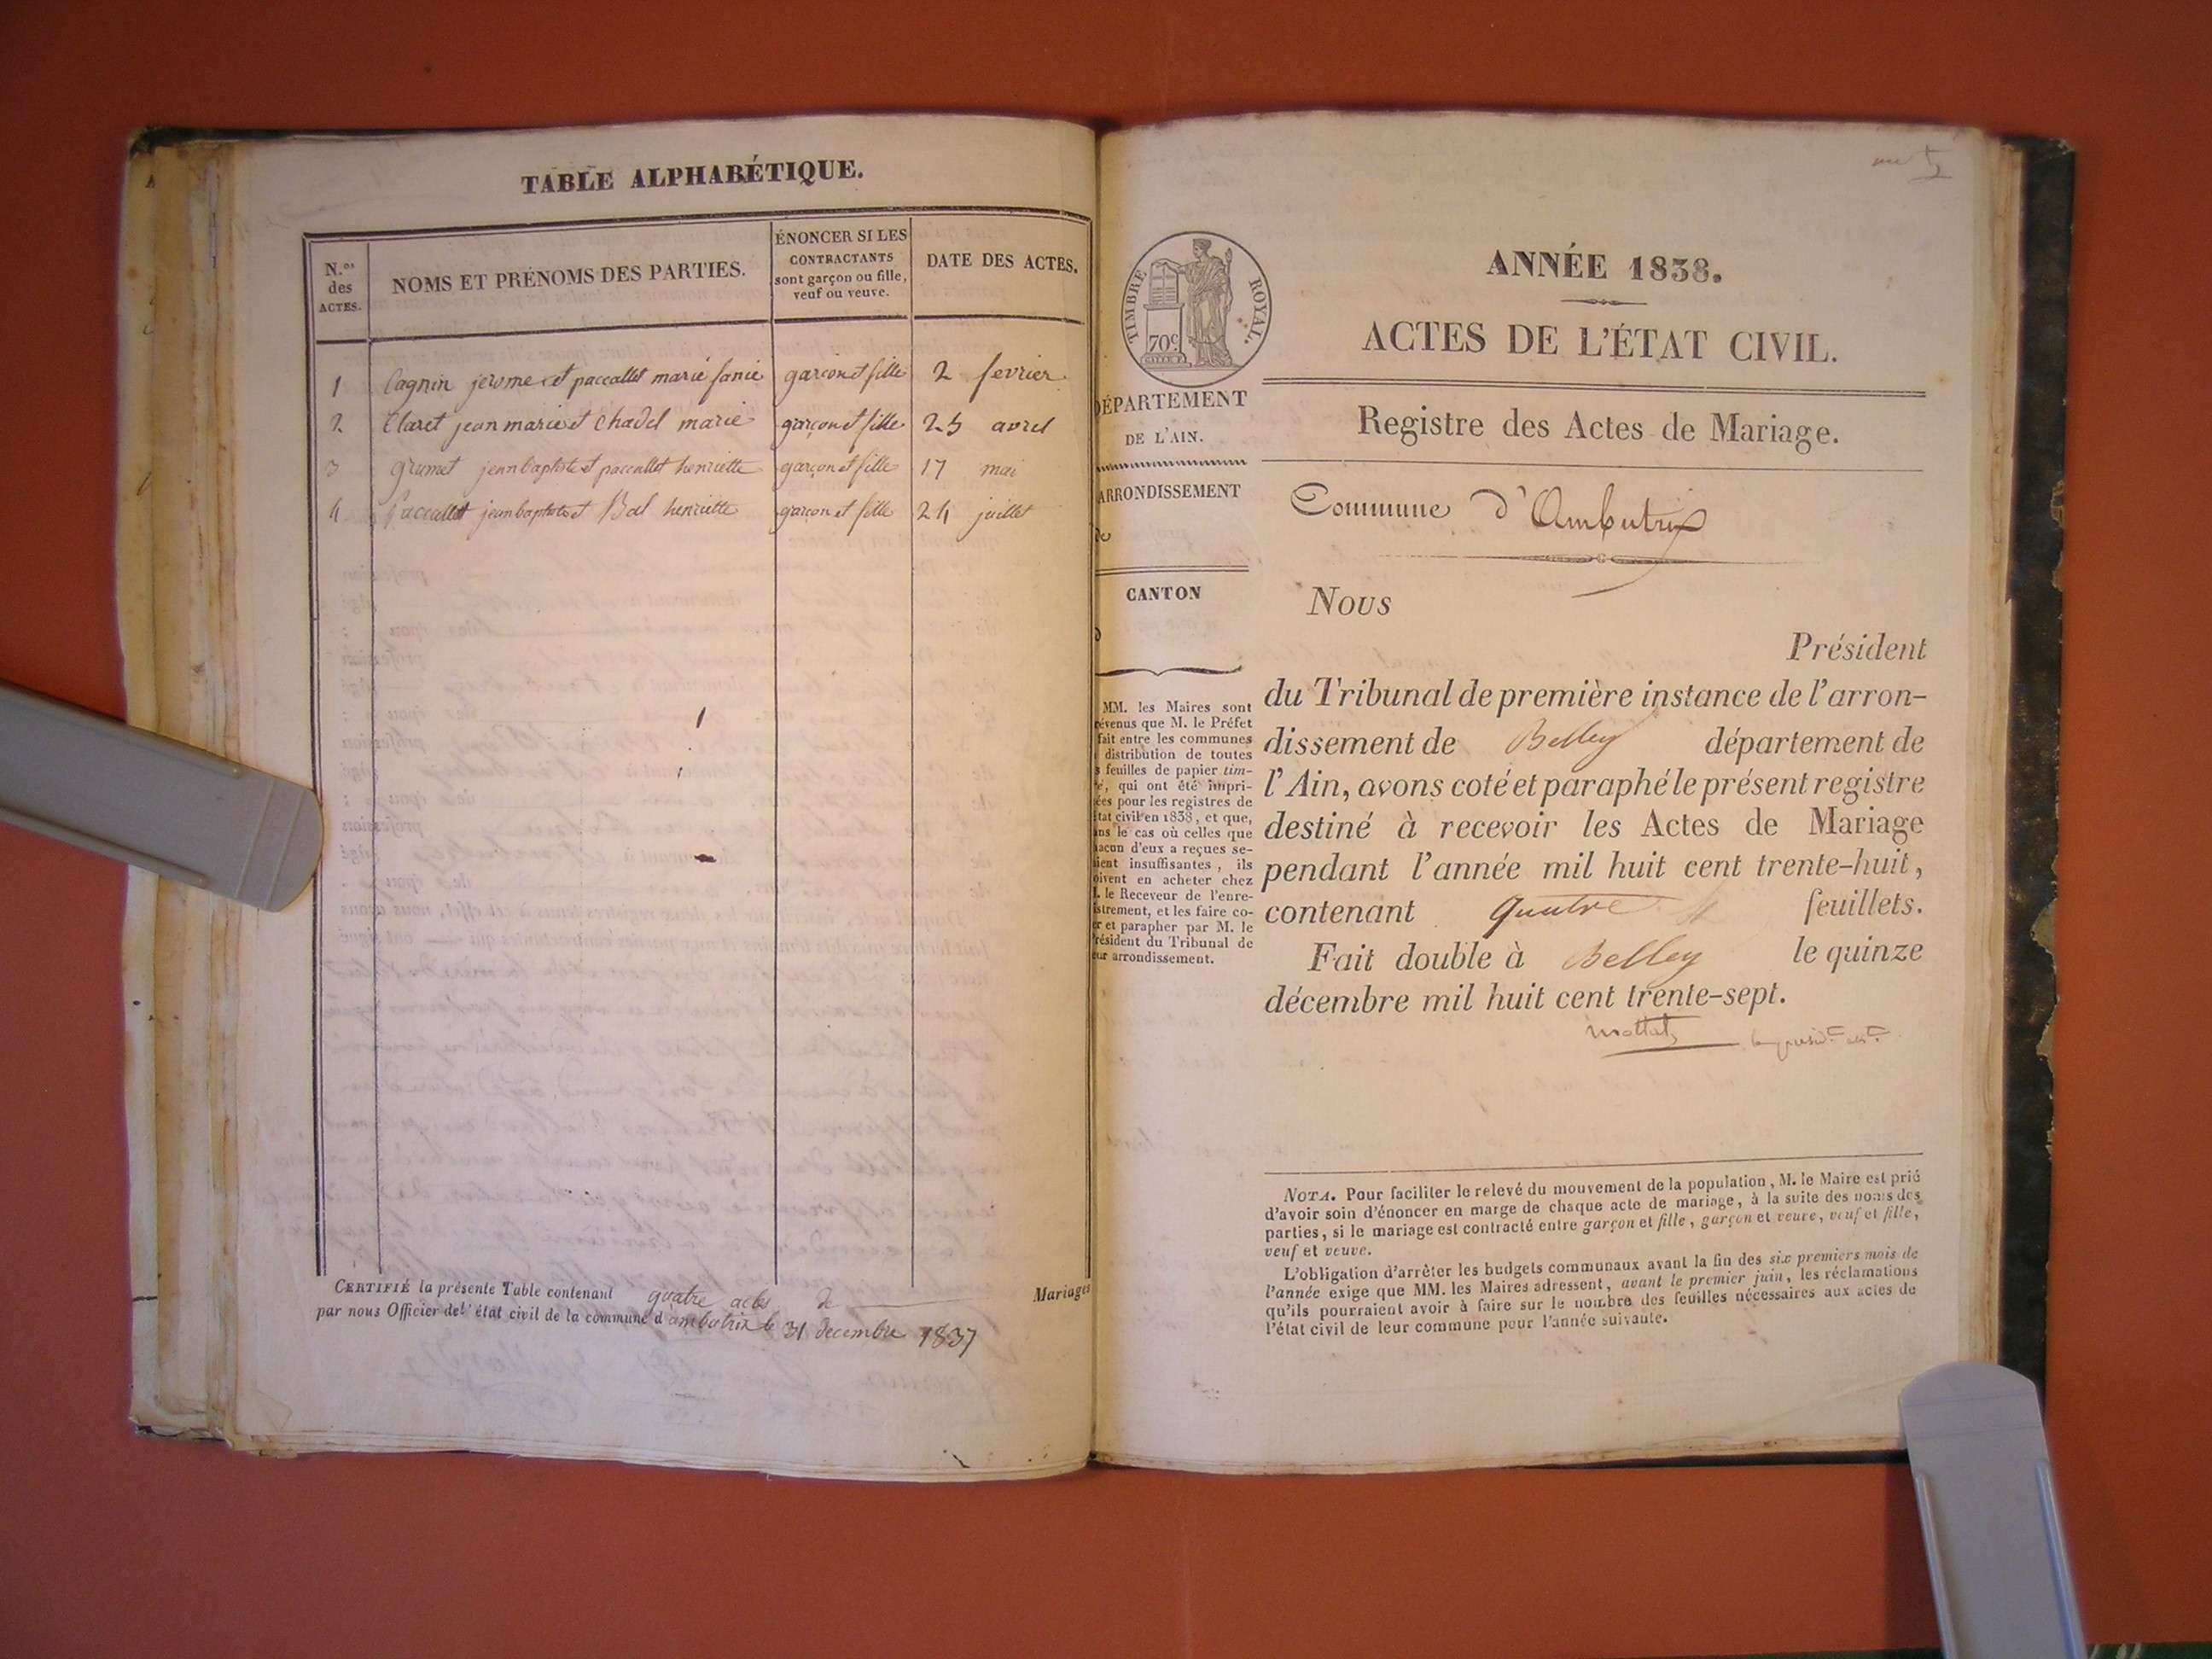 TABLE ALPHABÉTIQUE.
N.os des ACTES.
NOMS ET PRÉNOMS DES PARTIES.
ÉNONCER SI LES CONTRACTANTS sont garçon ou fille, veuf ou veuve.
DATE DES ACTES.
1 Cagnin jerome et paccallet marie fanie garçon et fille 2 fevrier
2 Claret jean marie et Chadel marie garçon et fille 25 avril
3 grumet jean baptiste et paccallet henriette garçon et fille 17 mai
4 Paccallet jean baptiste et Bal henriette garçon et fille 24 juillet
CERTIFIÉ la présente Table contenant quatre actes de Mariages
par nous Officier de l'état civil de la commune d'ambutrix le 31 decembre 1837
TIMBRE ROYAL.
70c
DÉPARTEMENT
DE L'AIN.
ARRONDISSEMENT
de
CANTON
d
MM. les Maires sont
prévenus que M. le Préfet
fait entre les communes
distribution de toutes
feuilles de papier tim-
bré, qui ont été impri-
mées pour les registres de
l'état civil en 1838, et que,
dans le cas où celles que
chacun d'eux a reçues se-
raient insuffisantes, ils
doivent en acheter chez
M. le Receveur de l'enre-
gistrement, et les faire co-
ter et parapher par M. le
Président du Tribunal de
leur arrondissement.
ANNÉE 1838.
ACTES DE L'ÉTAT CIVIL.
Registre des Actes de Mariage.
Commune d'Ambutrix
Nous
Président
du Tribunal de première instance de l'arron-
dissement de Belley département de
l'Ain, avons coté et paraphé le présent registre
destiné à recevoir les Actes de Mariage
pendant l'année mil huit cent trente-huit,
contenant quatre feuillets.
Fait double à Belley le quinze
décembre mil huit cent trente-sept.
NOTA. Pour faciliter le relevé du mouvement de la population, M. le Maire est prié
d'avoir soin d'énoncer en marge de chaque acte de mariage, à la suite des noms des
parties, si le mariage est contracté entre garçon et fille, garçon et veuve, veuf et fille,
veuf et veuve.
L'obligation d'arrêter les budgets communaux avant la fin des six premiers mois de
l'année exige que MM. les Maires adressent, avant le premier juin, les réclamations
qu'ils pourraient avoir à faire sur le nombre des feuilles nécessaires aux actes de
l'état civil de leur commune pour l'année suivante.